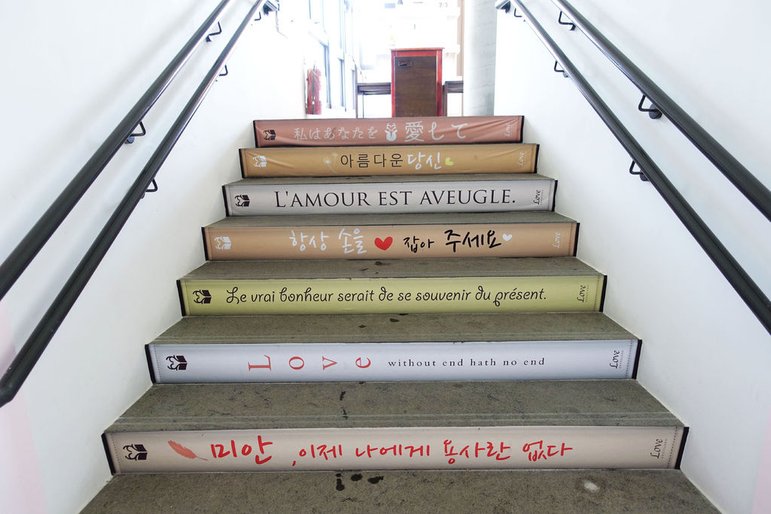 私はあなたを 愛して
Love
아름다운 당신
Love
L'AMOUR EST AVEUGLE.
Love
항상 손을 잡아 주세요
Love
Le vrai bonheur serait de se souvenir du présent.
Love
Love without end hath no end
Love
미안, 이제 나에게 용사란 없다
Love